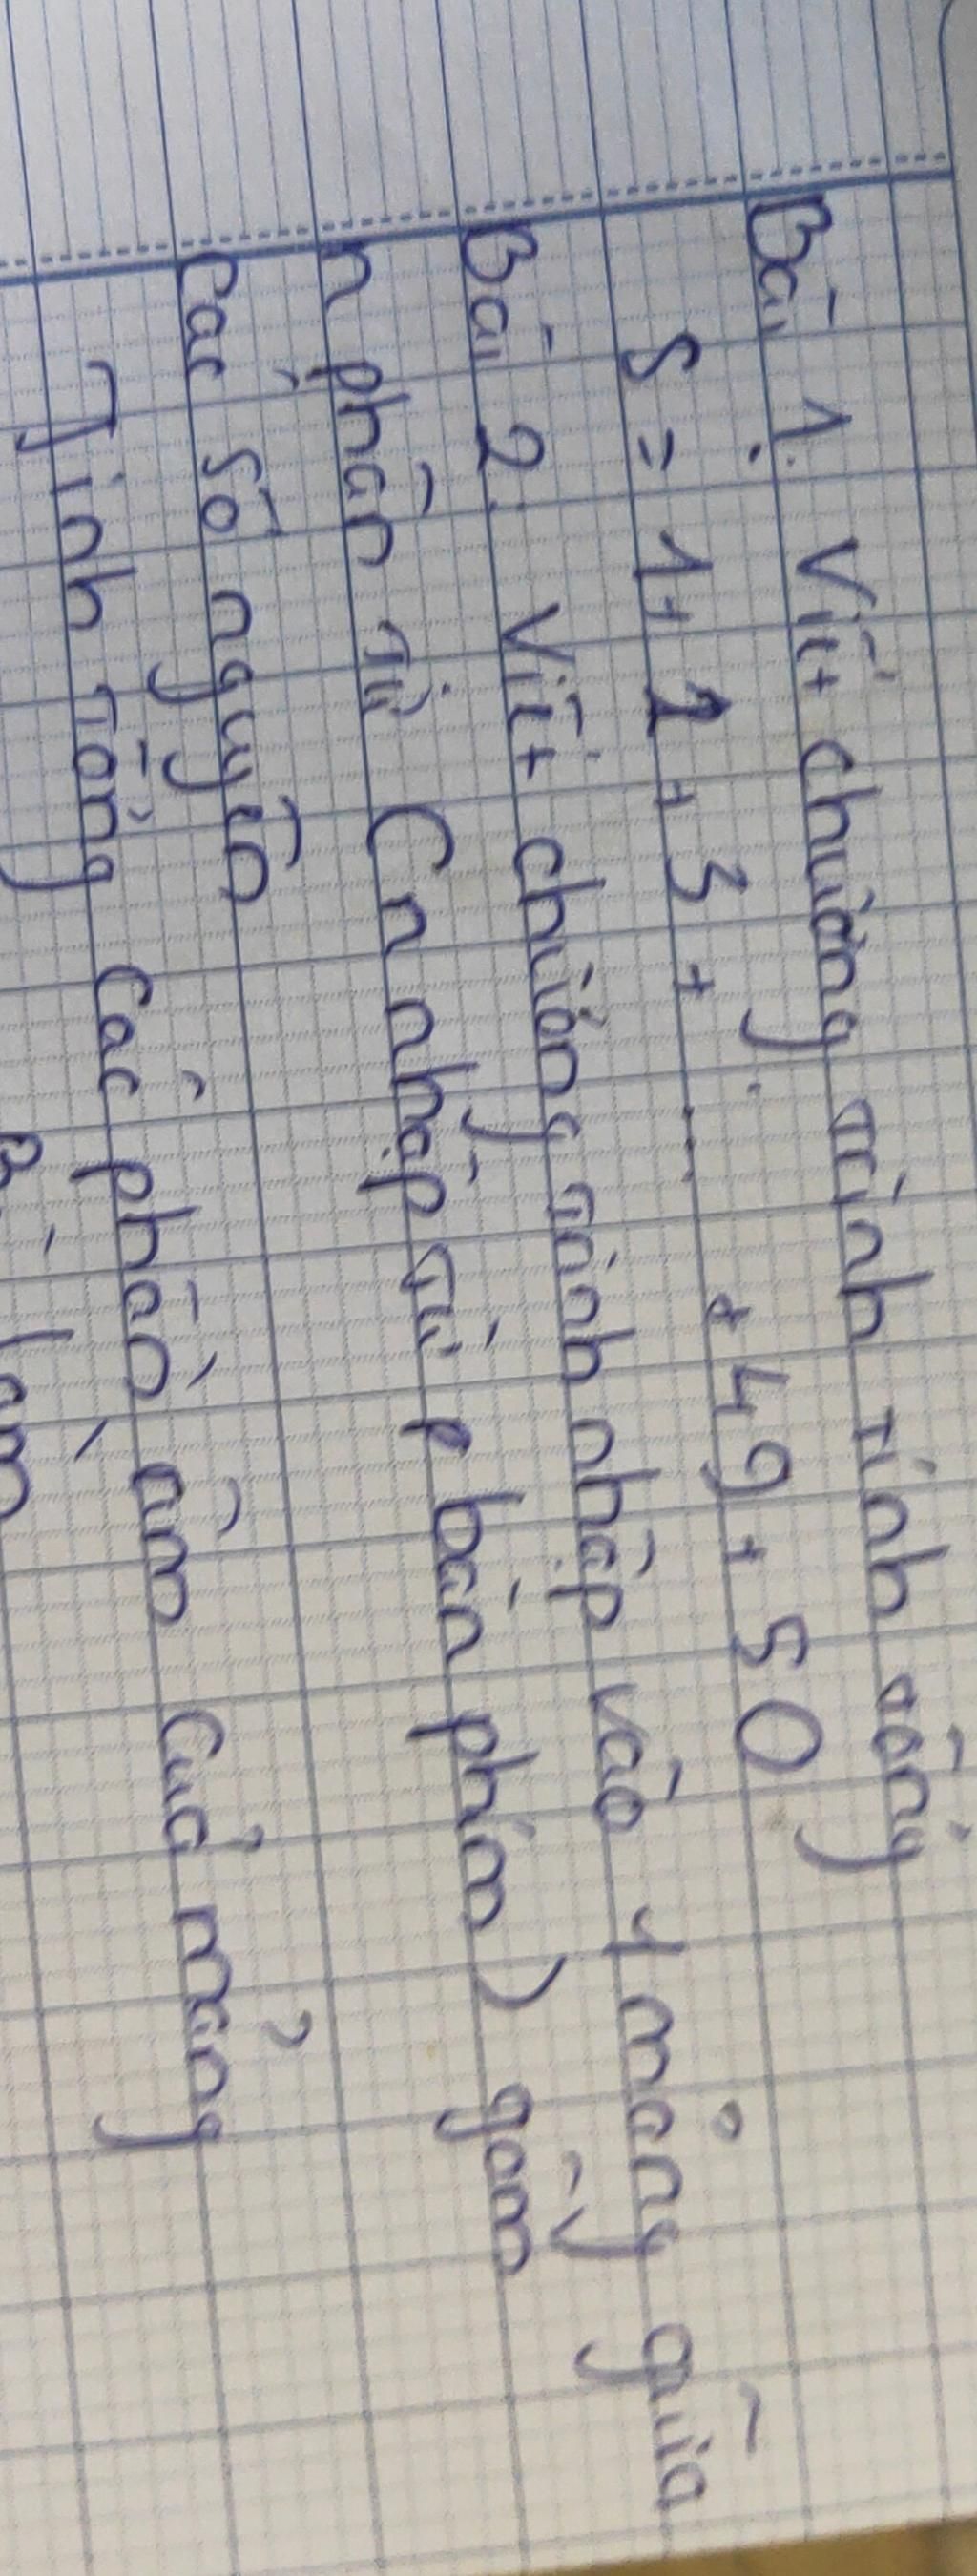 Bài 1: Viết chương trình tính tổng
S = 1 + 2 + 3 + .... + 49 + 50
Bài 2. Viết chương trình nhập vào 1 mảng giữa
n phần tử (n nhập từ bàn phím) gồm
các số nguyên
Tính tổng các phần tử âm của mảng